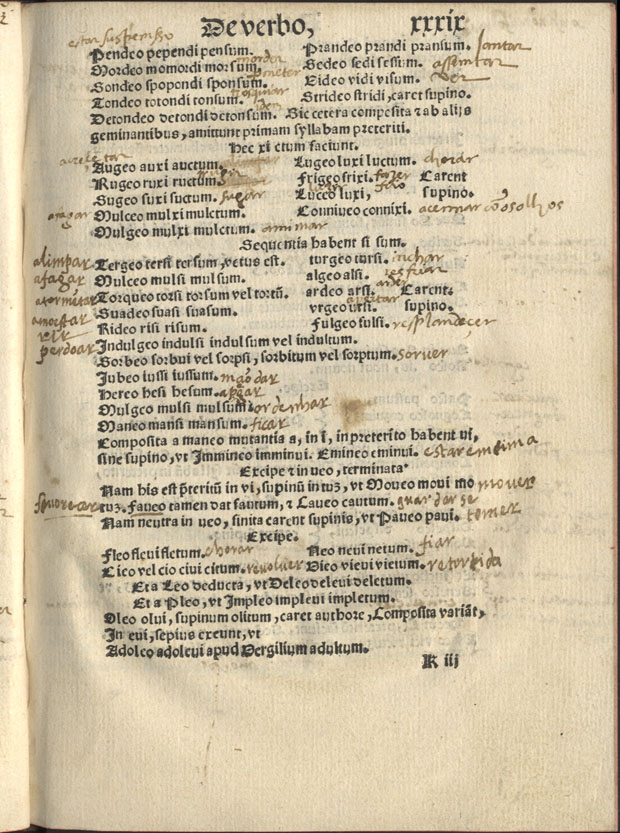 De verbo, xxxix
estar suspenso
Pendeo pependi pensum. Prandeo prandi pransum. Jantar
Mordeo momordi morsum. morder Sedeo sedi sessum. assentar
Sondeo spopondi sponsum. prometer Video vidi visum. ver
Tondeo totondi tonsum. trosquiar Strideo stridi, caret supino.
Detondeo detondi detonsum. Sic cetera composita & ab alijs
geminantibus, amittunt primam syllabam preteriti.
Hec xi ctum faciunt.
Augeo auxi auctum. Lugeo luxi luctum. chorar
Rugeo ruxi ructum. Frigeo frixi. Carent
Sugeo suxi suctum. sugar Luceo luxi, supino.
afagar Mulceo mulxi mulctum. Conniveo connixi. acermar cõ os olhos
Mulgeo mulxi mulctum. amimar
Sequentia habent si sum.
alimpar Tergeo tersi tersum, vetus est. turgeo tursi. inchar
afagar Mulceo mulsi mulsum. algeo alsi. resfriar
atormẽtar Torqueo torsi torsum vel tortũ. ardeo arsi. arder Carent
amoestar Suadeo suasi suasum. vrgeo ursi. apertar supino.
rir Rideo risi risum. Fulgeo fulsi. resplandeçer
perdoar Indulgeo indulsi indulsum vel indultum.
Sorbeo sorbui vel sorpsi, sorbitum vel sorptum. sorver
Jubeo iussi iussum. mãdar
Hereo hesi hesum. apegar
Mulgeo mulsi mulsum. ordenhar
Maneo mansi mansum. ficar
Composita a maneo mutantia a, in i, in preterito habent ui,
sine supino, vt Immineo imminui. Emineo eminui. estar em cima
Excipe & in ueo, terminata
Nam his est p̃teritũ in vi, supinũ in tuz, vt Moueo moui mo mover
favorecer tuz. Faueo tamen dat fautum, & Caueo cautum. guardar se
Nam neutra in ueo, finita carent supinis, vt Paueo paui. temer
Excipe.
Fleo fleui fletum. chorar Neo neui netum. fiar
Cieo vel cio ciui citum. revolver Vieo vieui vietum. retorcida
Et a Leo deducta, vt Deleo deleui deletum.
Et a Pleo, vt Impleo impleui impletum.
Oleo olui, supinum olitum, caret authore, Composita variãt,
In eui, sepius exeunt, vt
Adoleo adoleui apud Vergilium adultum.
K iij